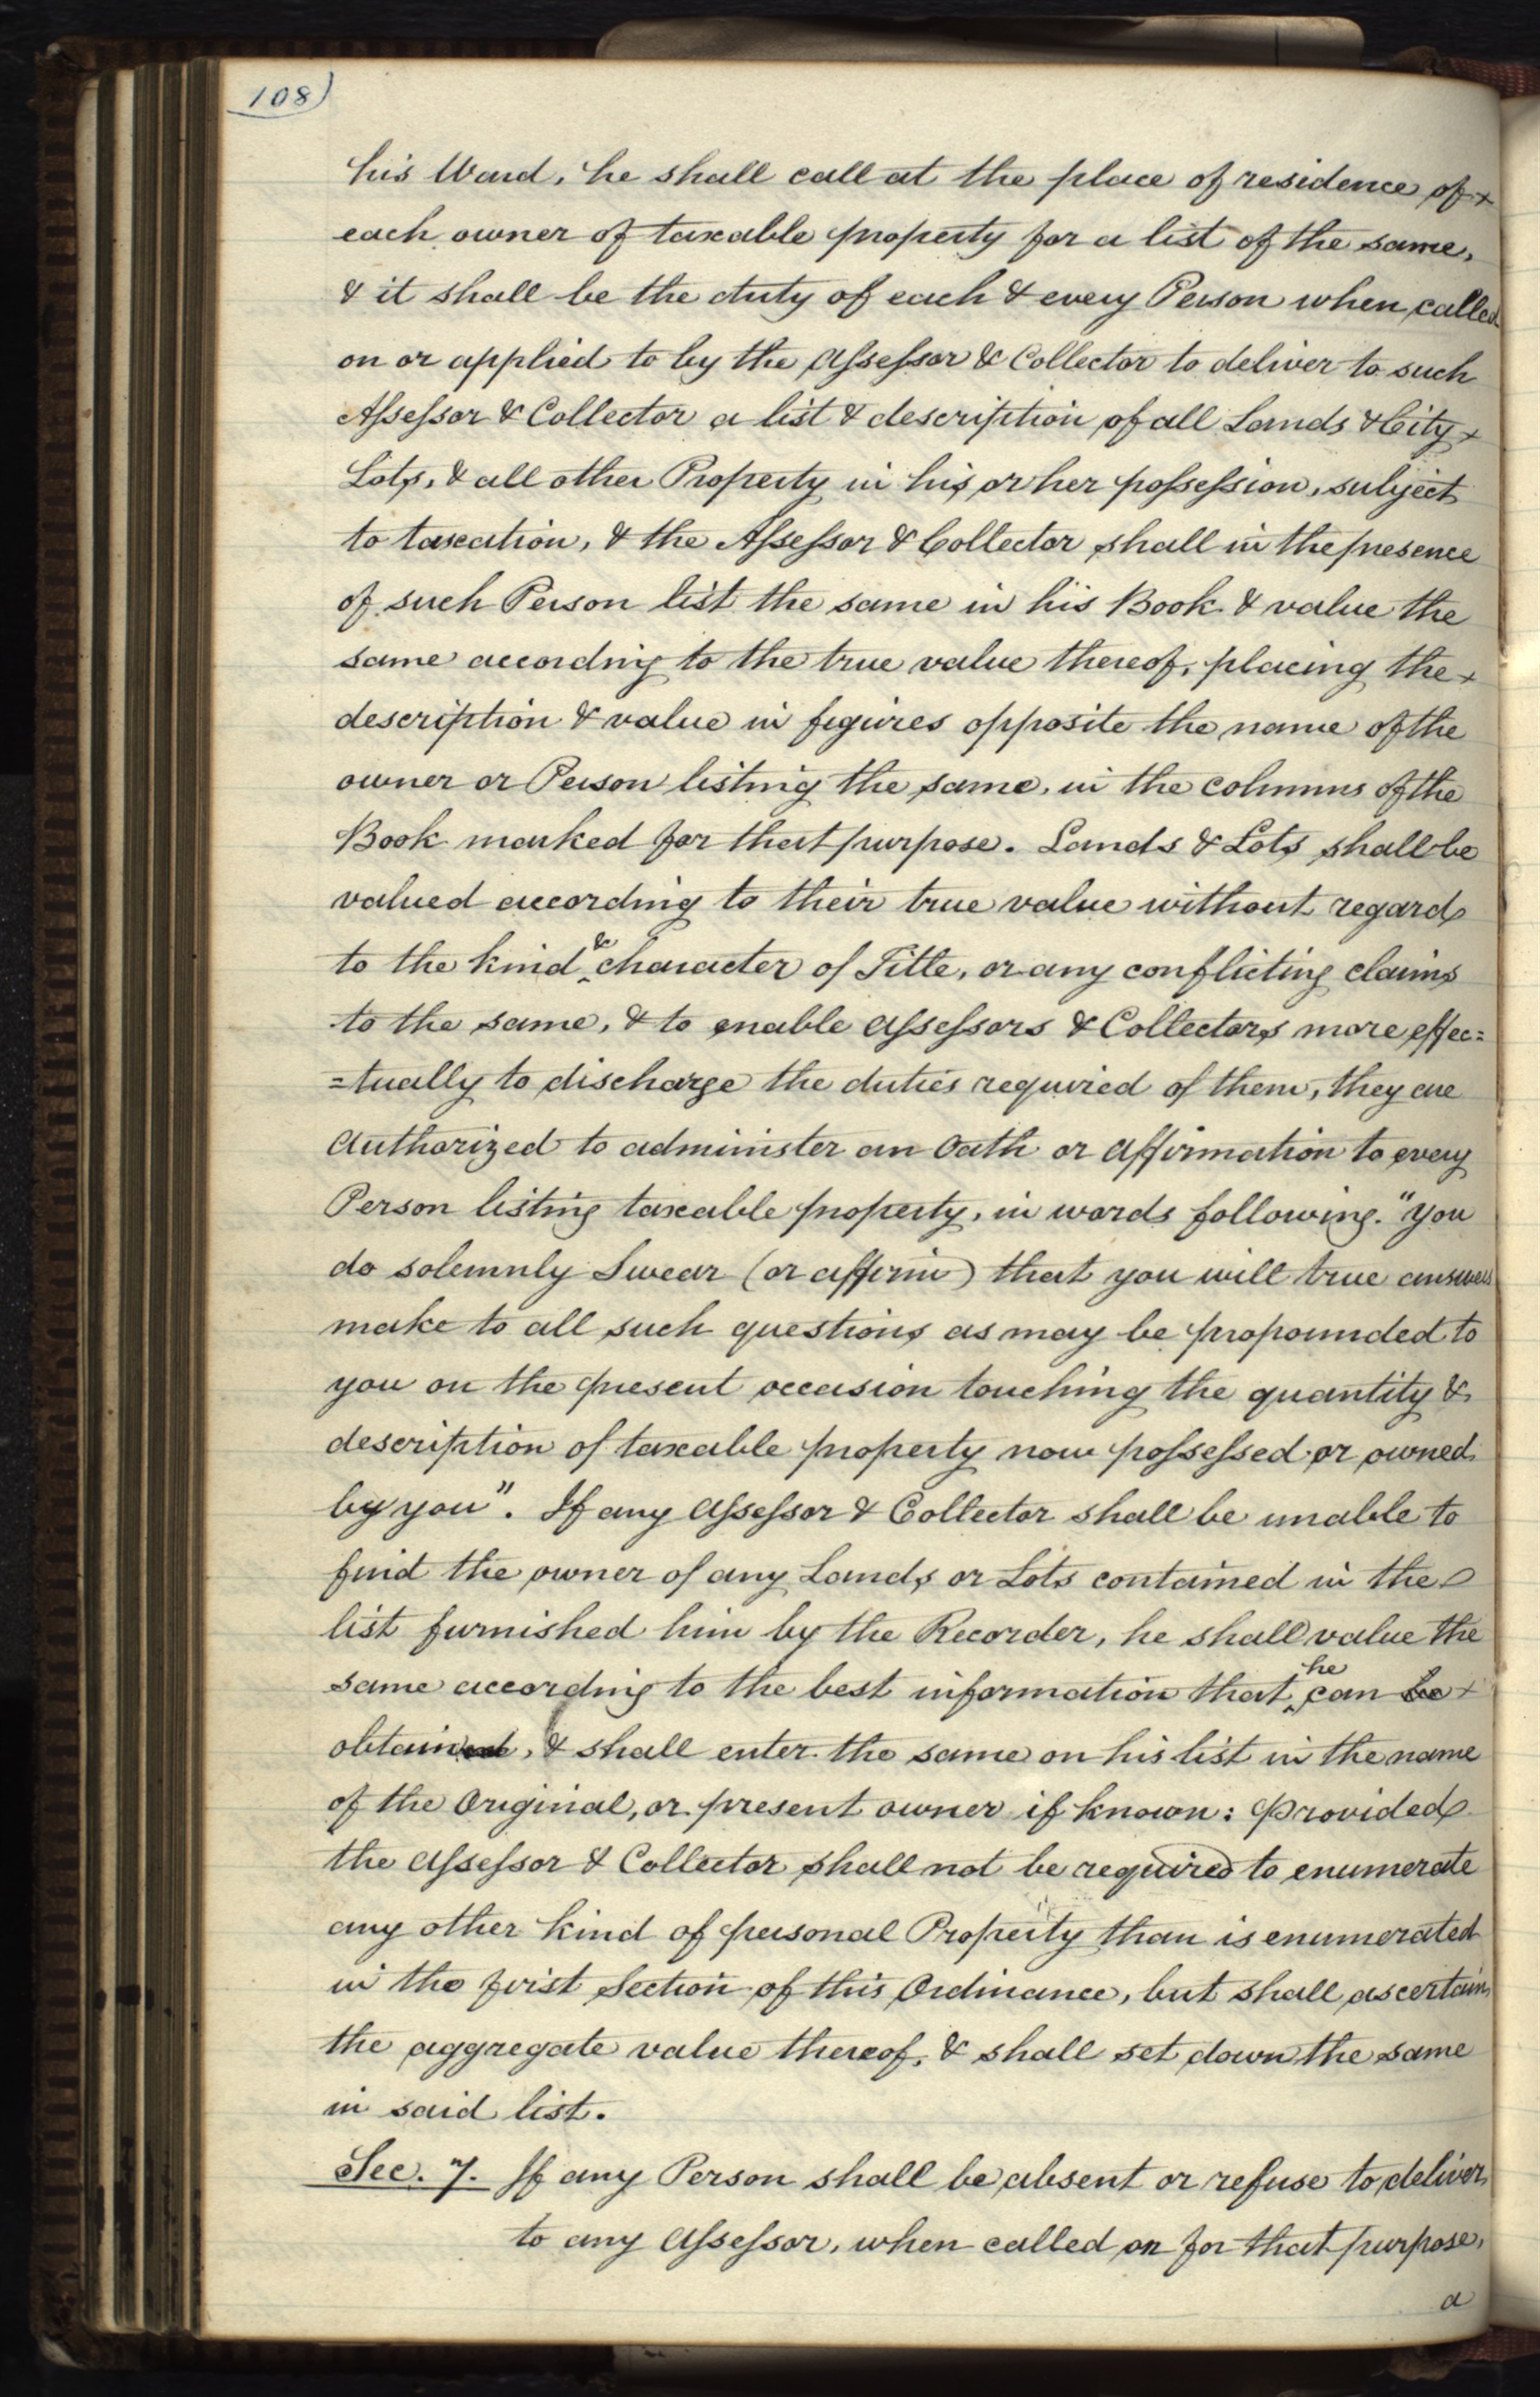 108)
his Ward, he shall call at the place of residence of
each owner of taxable property for a list of the same,
& it shall be the duty of each & every Person when called
on or applied to by the Assessor & Collector to deliver to such
Assessor & Collector a list & description of all Lands & City
Lots, & all other Property in his or her possession, subject
to taxation, & the Assessor & Collector shall in the presence
of such Person list the same in his Book & value the
same according to the true value thereof, placing the
description & value in figures opposite the name of the
owner or Person listing the same, in the columns of the
Book marked for that purpose. Lands & Lots shall be
valued according to their true value without regard
to the kind & character of Title, or any conflicting claims
to the same, & to enable Assessors & Collectors more effec=
=tually to discharge the duties required of them, they are
Authorized to administer an Oath or Affirmation to every
Person listing taxable property, in words following. "You
do solemnly Swear (or affirm) that you will true answers
make to all such questions as may be propounded to
you on the present occasion touching the quantity &
description of taxable property now possessed or owned
by you". If any Assessor & Collector shall be unable to
find the owner of any Lands or Lots contained in the
list furnished him by the Recorder, he shall value the
same according to the best information that he can be
obtained, & shall enter the same on his list in the name
of the Original, or present owner if known: Provided
the Assessor & Collector shall not be required to enumerate
any other kind of personal Property than is enumerated
in the first Section of this Ordinance, but shall ascertain
the aggregate value thereof, & shall set down the same
in said list.
Sec. 7. If any Person shall be absent or refuse to deliver
to any Assessor, when called on for that purpose,
a